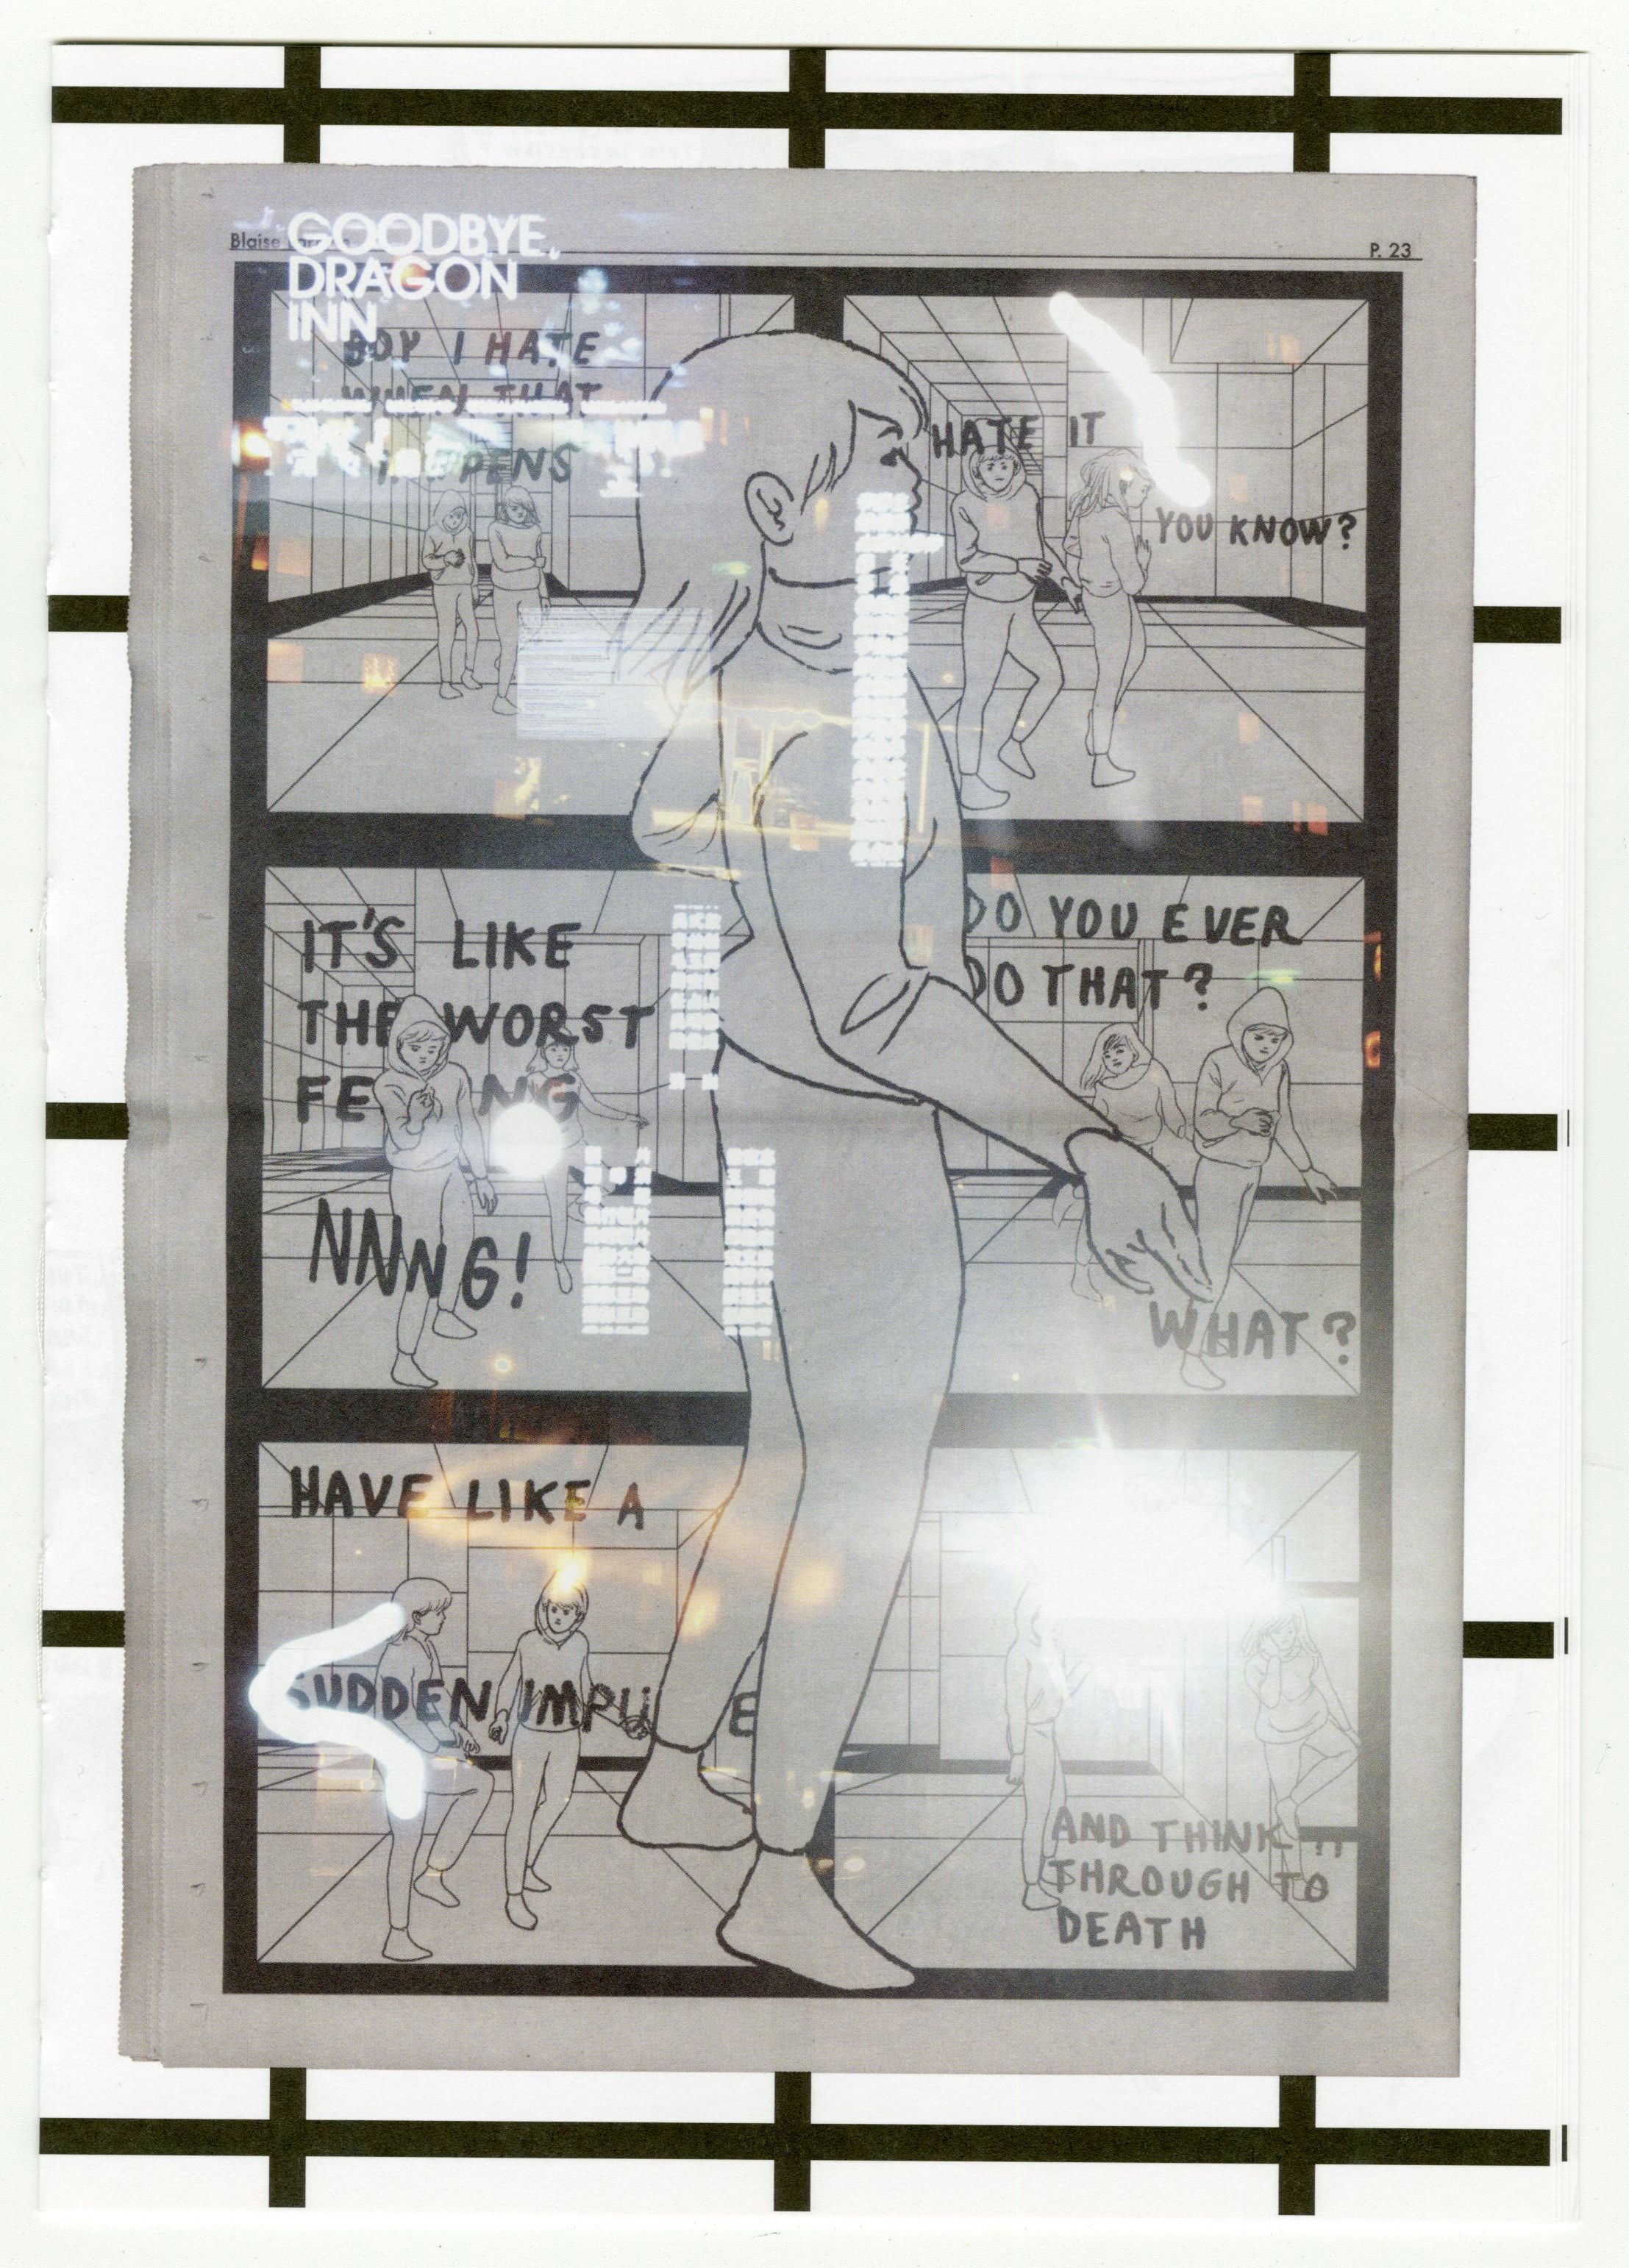 Blaise
P. 23
GOODBYE,
DRAGON
INN
BOY I HATE
WHEN THAT
HAPPENS
HATE IT
YOU KNOW?
IT'S LIKE
THE WORST
FE NG
NNNG!
DO YOU EVER
DO THAT?
WHAT?
HAVE LIKE A
SUDDEN IMPU E
AND THINK IT
THROUGH TO
DEATH